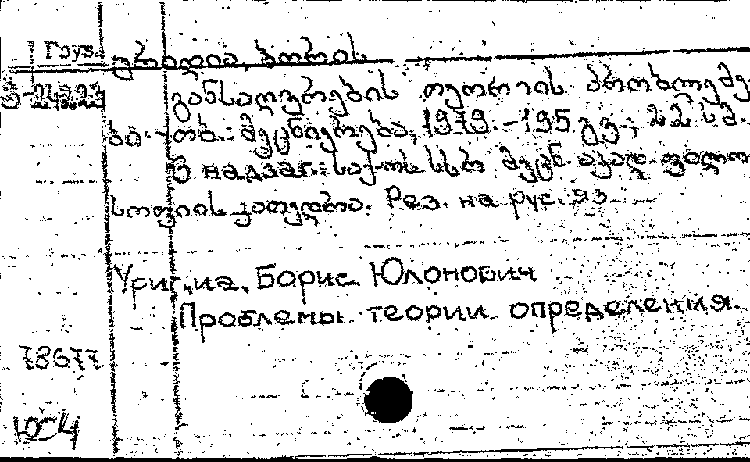 Груз.
ურიდია, ბორის
Б-24223
განსაღვრების თეორიის პრობლემე
ბი.-თბ.: მეცნიერება, 1979.-195 გვ.; 22 სმ.
В надзаг.: საქ-ის სსრ მეცნ. აკად. ფილო
სოფიის კათედრა. Рез. на рус. яз
Уридиа, Борис Юлонович
Проблемы теории определения.
78677
Ю4